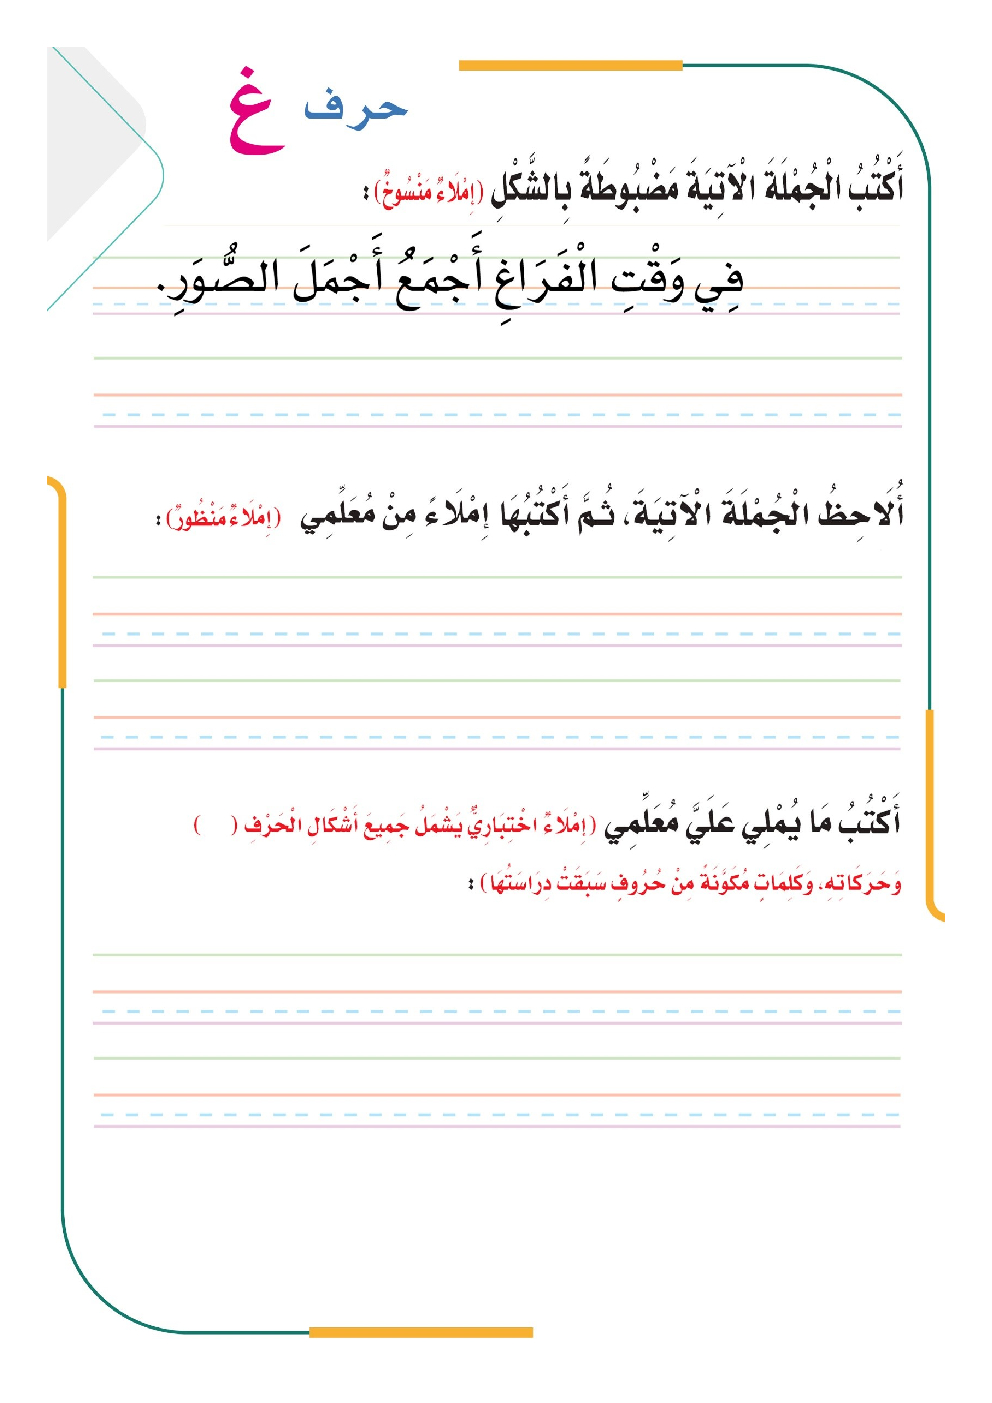 حرف غ
أَكْتُبُ الْجُمْلَةَ الْآتِيَةَ مَضْبُوطَةً بِالشَّكْلِ (إِمْلَاءٌ مَنْسُوخٌ) :
فِي وَقْتِ الْفَرَاغِ أَجْمَعُ أَجْمَلَ الصُّوَرِ.
أُلَاحِظُ الْجُمْلَةَ الْآتِيَةَ، ثُمَّ أَكْتُبُهَا إِمْلَاءً مِنْ مُعَلِّمِي (إِمْلَاءٌ مَنْظُورٌ) :
أَكْتُبُ مَا يُمْلِي عَلَيَّ مُعَلِّمِي (إِمْلَاءٌ اخْتِبَارِيٌّ يَشْمَلُ جَمِيعَ أَشْكَالِ الْحَرْفِ ( )
وَحَرَكَاتِهِ، وَكَلِمَاتٍ مُكَوَّنَةً مِنْ حُرُوفٍ سَبَقَتْ دِرَاسَتُهَا) :